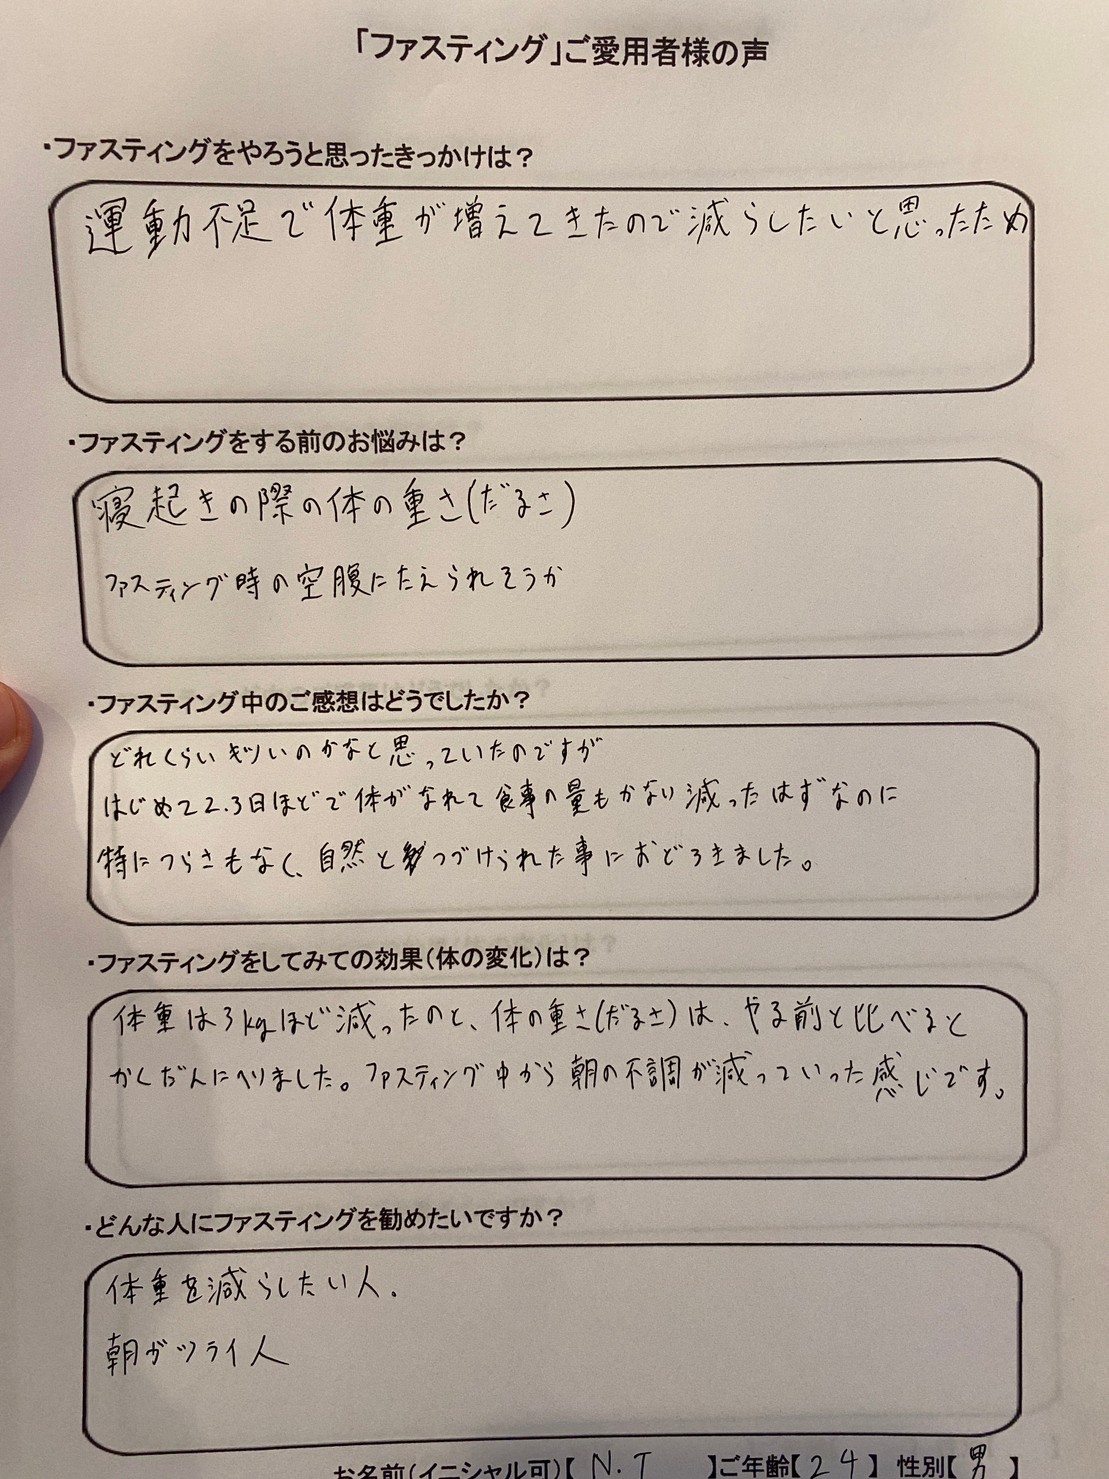 「ファスティング」ご愛用者様の声
・ファスティングをやろうと思ったきっかけは？
運動不足で体重が増えてきたので減らしたいと思ったため
・ファスティングをする前のお悩みは？
寝起きの際の体の重さ(だるさ)
ファスティング時の空腹にたえられそうか
・ファスティング中のご感想はどうでしたか？
どれくらいキツいのかなと思っていたのですが
はじめて2.3日ほどで体がなれて食事の量もかない減ったはずなのに
特につらさもなく、自然とつづけられた事におどろきました。
・ファスティングをしてみての効果(体の変化)は？
体重は3kgほど減ったのと、体の重さ(だるさ)は、やる前と比べると
かくだんにへりました。ファスティング中から朝の不調が減っていった感じです。
・どんな人にファスティングを勧めたいですか？
体重を減らしたい人.
朝がツライ人
お名前(イニシャル可)【 N.T 】ご年齢【 24 】 性別【 男 】